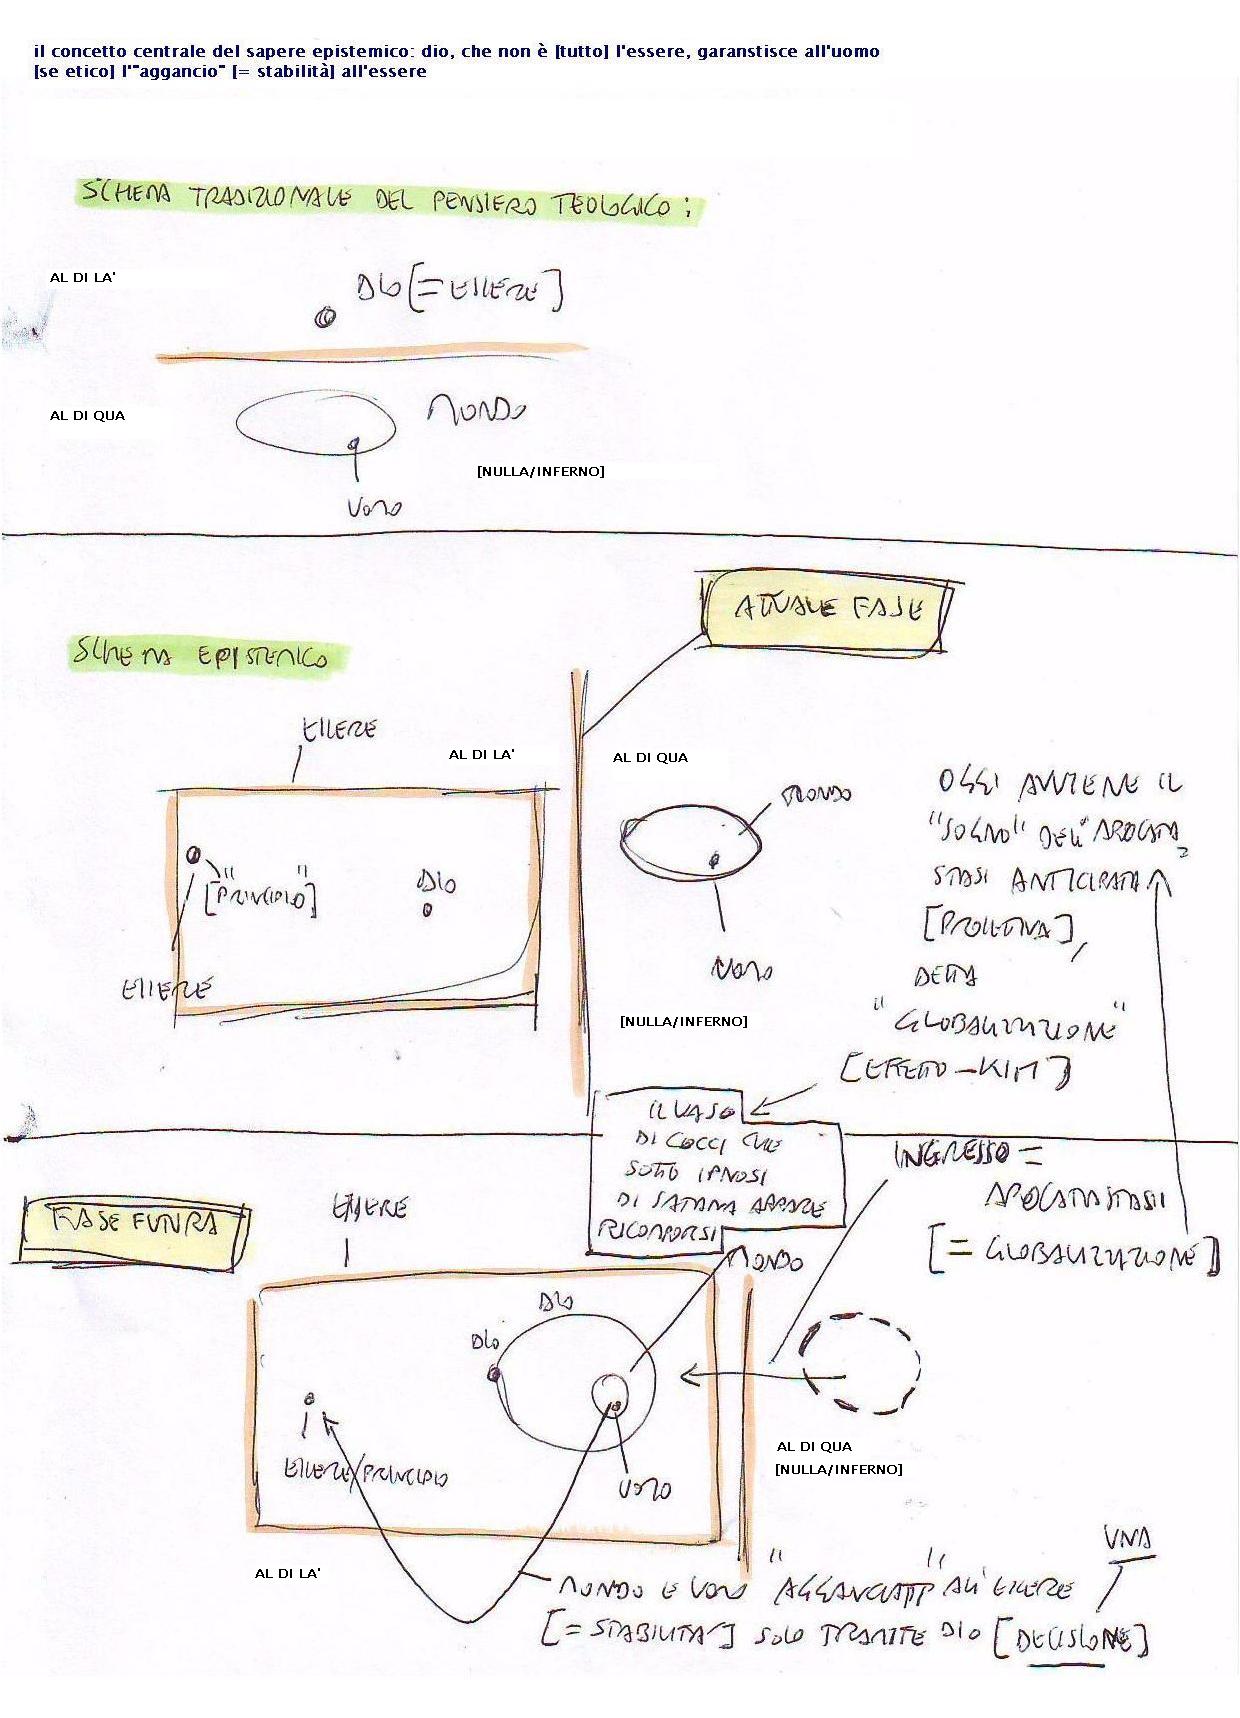 il concetto centrale del sapere epistemico: dio, che non è [tutto] l'essere, garanstisce all'uomo
[se etico] l'"aggancio" [= stabilità] all'essere
SCHEMA TRADIZIONALE DEL PENSIERO TEOLOGICO:
AL DI LA'
DIO [= ESSERE]
AL DI QUA
MONDO
[NULLA/INFERNO]
UOMO
ATTUALE FASE
SCHEMA EPISTEMICO
ESSERE
AL DI LA'
AL DI QUA
MONDO
"
"
[PRINCIPIO]
DIO
ESSERE
UOMO
[NULLA/INFERNO]
OGGI AVVIENE IL
"SOGNO" DELL'APOCATA
STASI ANTICIPATA
[PROLETTIVA],
DETTA
"GLOBALIZZAZIONE"
[EFFETTO-KIM]
IL VASO
DI COCCI CHE
SOTTO IPNOSI
DI SATANA APPARE
RICOMPORSI
INGRESSO =
APOCATASTASI
[= GLOBALIZZAZIONE]
FASE FUTURA
ESSERE
MONDO
DIO
DIO
ESSERE/PRINCIPIO
UOMO
AL DI QUA
[NULLA/INFERNO]
AL DI LA'
UNA
MONDO E UOMO "AGGANCIATI" ALL'ESSERE
[= STABILITA'] SOLO TRAMITE DIO [DECISIONE]